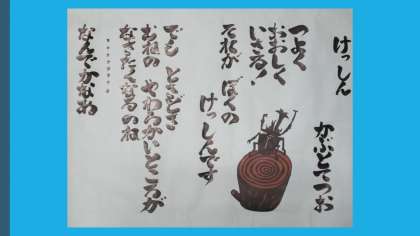 けっしん
かぶとてつお
つよく
おおしく
いきる!
それが ぼくの
けっしんです
でも ときどき
むねの やわらかいところが
なきたくなるのね
なんでかなあ